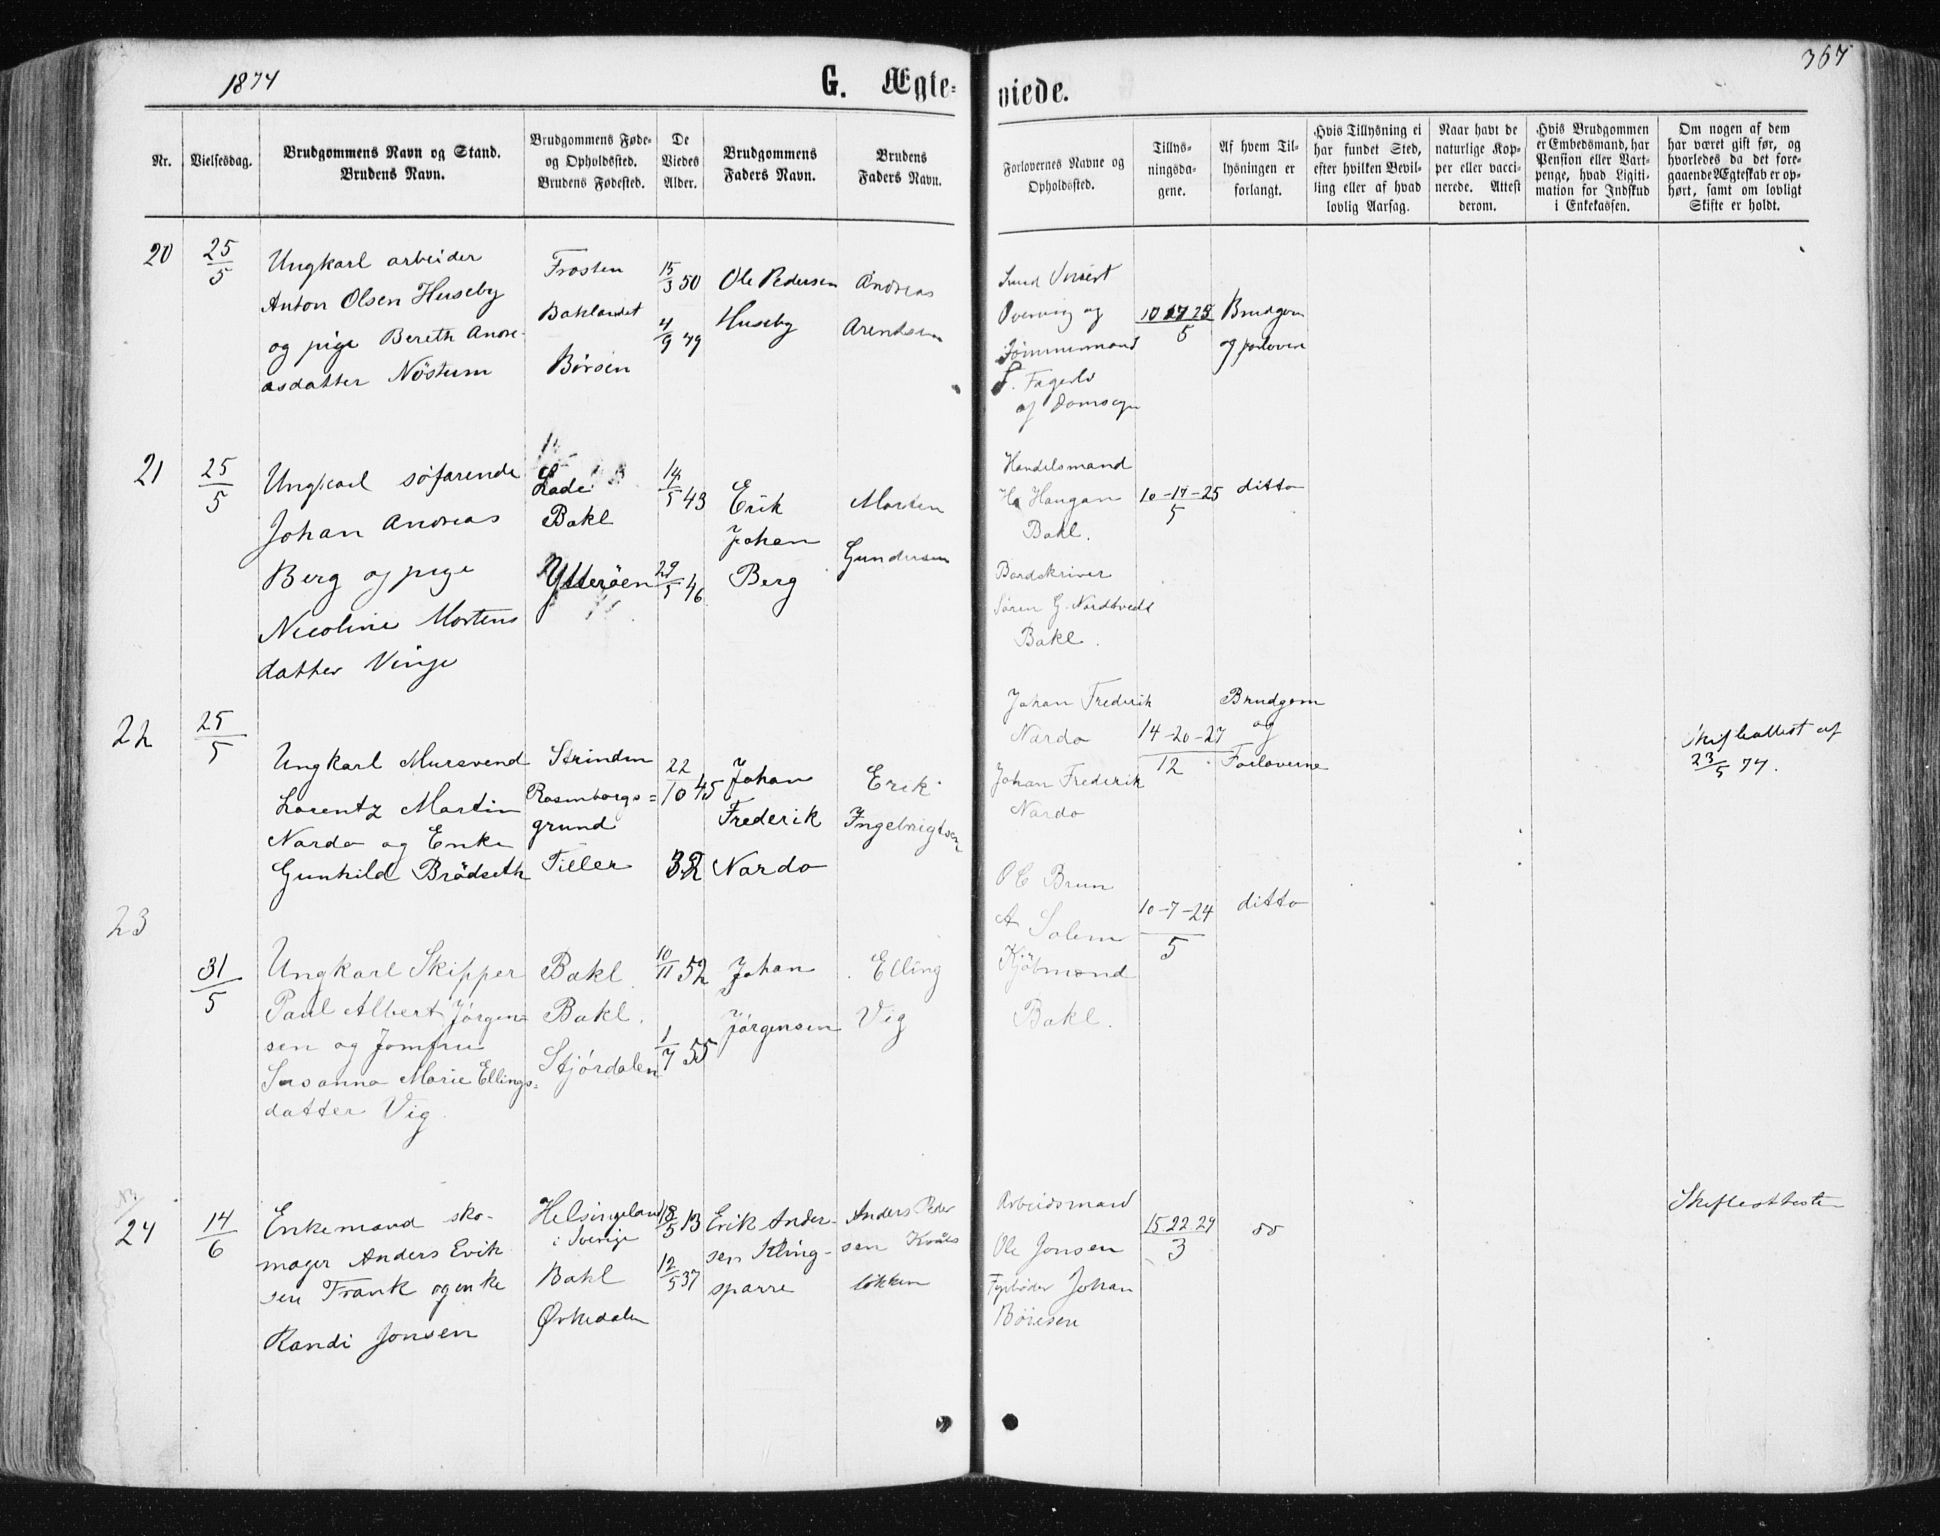 1874
G. Ægte-
viede.
367
Nr.
Vielsesdag.
Brudgommens Navn og Stand.
Brudens Navn.
Brudgommens Føde-
og Opholdssted.
Brudens Fødested.
De
Viedes
Alder.
Brudgommens
Faders Navn.
Brudens
Faders Navn.
Forlovernes Navne og
Opholdssted.
Tillys-
ningsda-
gene.
Af hvem Til-
lysningen er
forlangt.
Hvis Tillysning ei
har fundet Sted,
efter hvilken Bevil-
ling eller af hvad
lovlig Aarsag.
Naar havt de
naturlige Kop-
per eller vacci-
nerede. Attest
derom.
Hvis Brudgommen
er Embedsmand, har
Pension eller Vart-
penge, hvad Ligiti-
mation for Indskud
i Enkekassen.
Om nogen af dem
har været gift før, og
hvorledes da det fore-
gaaende Ægteskab er op-
hørt, samt om lovligt
Skifte er holdt.
20
25/5
Ungkarl arbeider
Anton Olsen Huseby
og pige Bereth Andre-
asdatter Nöstum
Frosten
Baklandet
Börsen
15/3 50
4/9 49
Ole Pedersen
Huseby
Andreas
Arendsen
og
Tömmermand
af Domsogn
10 17 25
5
Brudgom
og forlover
21
25/5
Ungkarl söfarende
Johan Andreas
Berg og pige
Nicoline Mortens
datter Vinje
Lade
Bakl
Ytteröen
14/5 43
29/5 46
Erik
Johan
Berg
Morten
Gundersen
Handelsmand
Haugan
Bakl.
Bordskriver
Sören G. Nordtvedt
Bakl.
10-17-25
5
ditto
22
25/5
Ungkarl Mursvend
Lorentz Martin
Nardo og Enke
Gunhild Brödseth
Strinden
Rosenborgs=
grund
Tiller
22/10 45
32
Johan
Frederik
Nardo
Erik
Ingebrigtsen
Johan Frederik
Nardo
Johan Frederik
Nardo
14-20-27
12
Brudgom
og
Forloverne
Skifteattest af
23/5 74.
23
31/5
Ungkarl Skipper
Paul Albert Jörgen=
sen og Jomfru
Susanna Marie Ellings=
datter Vig.
Bakl.
Bakl.
Stjördalen
10/11 52
1/7 55
Johan
Jörgensen
Elling
Vig
O C Brun
A Solem
Kjöbmænd
Bakl.
10-7-24
5
ditto
24
14/6
Enkemand sko-
mager Anders Erik
sen Frank og enke
Randi Jonsen
Helsingeland
i Sverige
Bakl
Örkedalen
18/5 13
12/5 37
Erik Ander-
sen Kling-
sparre
Anders Peder
sen Kvåls
lökken
Arbeidsmand
Ole Jonsen
Fyrböder Johan
Börresen
15 22 29
3
do
Skifteatteste